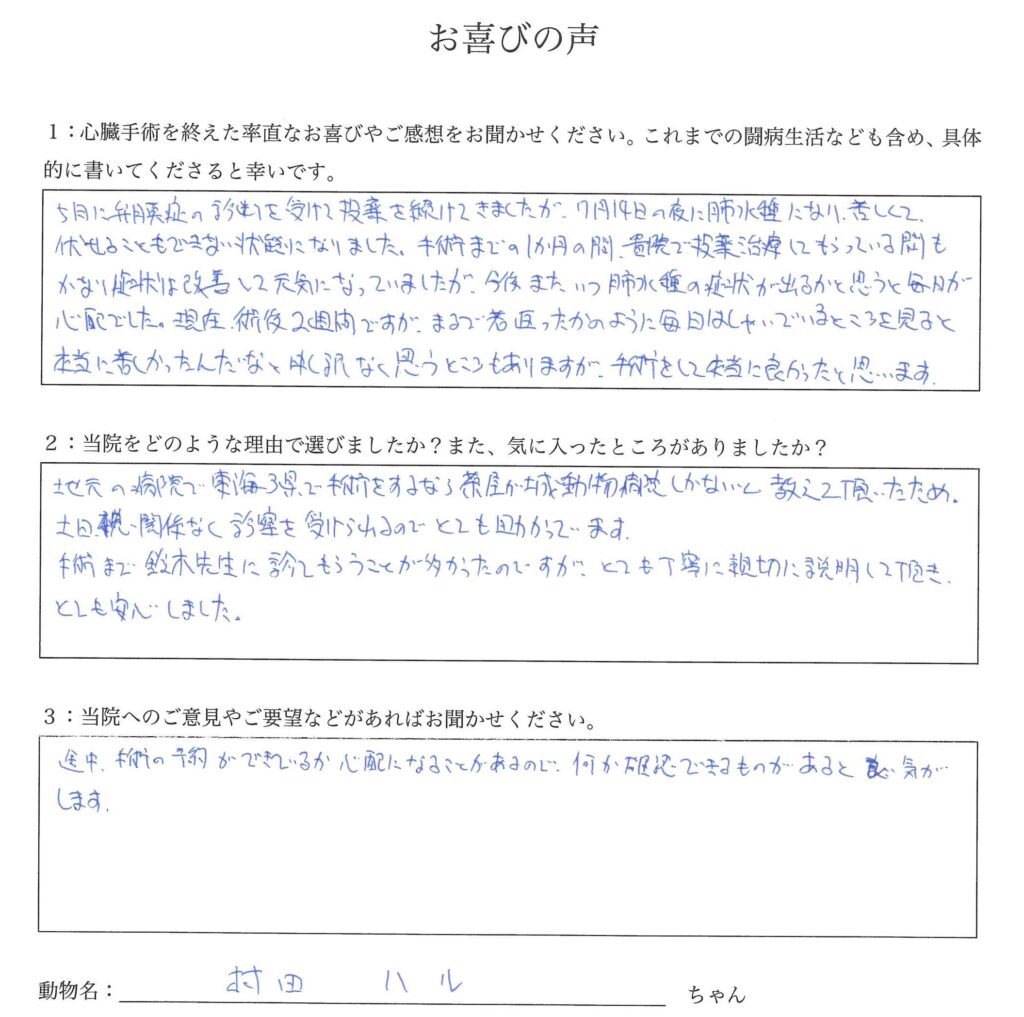 お喜びの声
1：心臓手術を終えた率直なお喜びやご感想をお聞かせください。これまでの闘病生活なども含め、具体
的に書いてくださると幸いです。
5月に弁膜症の診断を受けて投薬を続けてきましたが、7月14日の夜に肺水種になり、苦しくて、
伏せることもできない状態になりました。手術までの1か月の間、貴院で投薬治療してもらっている間も
かなり症状は改善して元気になっていましたが、今後またいつ肺水種の症状が出るかと思うと毎日が
心配でした。現在、術後2週間ですが、まるで若返ったかのように毎日はしゃいでいるところを見ると
本当に苦しかったんだなと申し訳なく思うところもありますが、手術をして本当に良かったと思います。
2：当院をどのような理由で選びましたか？また、気に入ったところがありましたか？
地元の病院で東海3県で手術をするなら茶屋が坂動物病院しかないと教えて頂いたため。
土日祝関係なく診察を受けられるのでとても助かっています。
手術まで鈴木先生に診てもらうことが多かったのですが、とても丁寧に親切に説明して頂き、
とても安心しました。
3：当院へのご意見やご要望などがあればお聞かせください。
途中、手術の予約ができているか心配になることがあるので、何か確認できるものがあると良い気が
します。
動物名：村田 ハル ちゃん